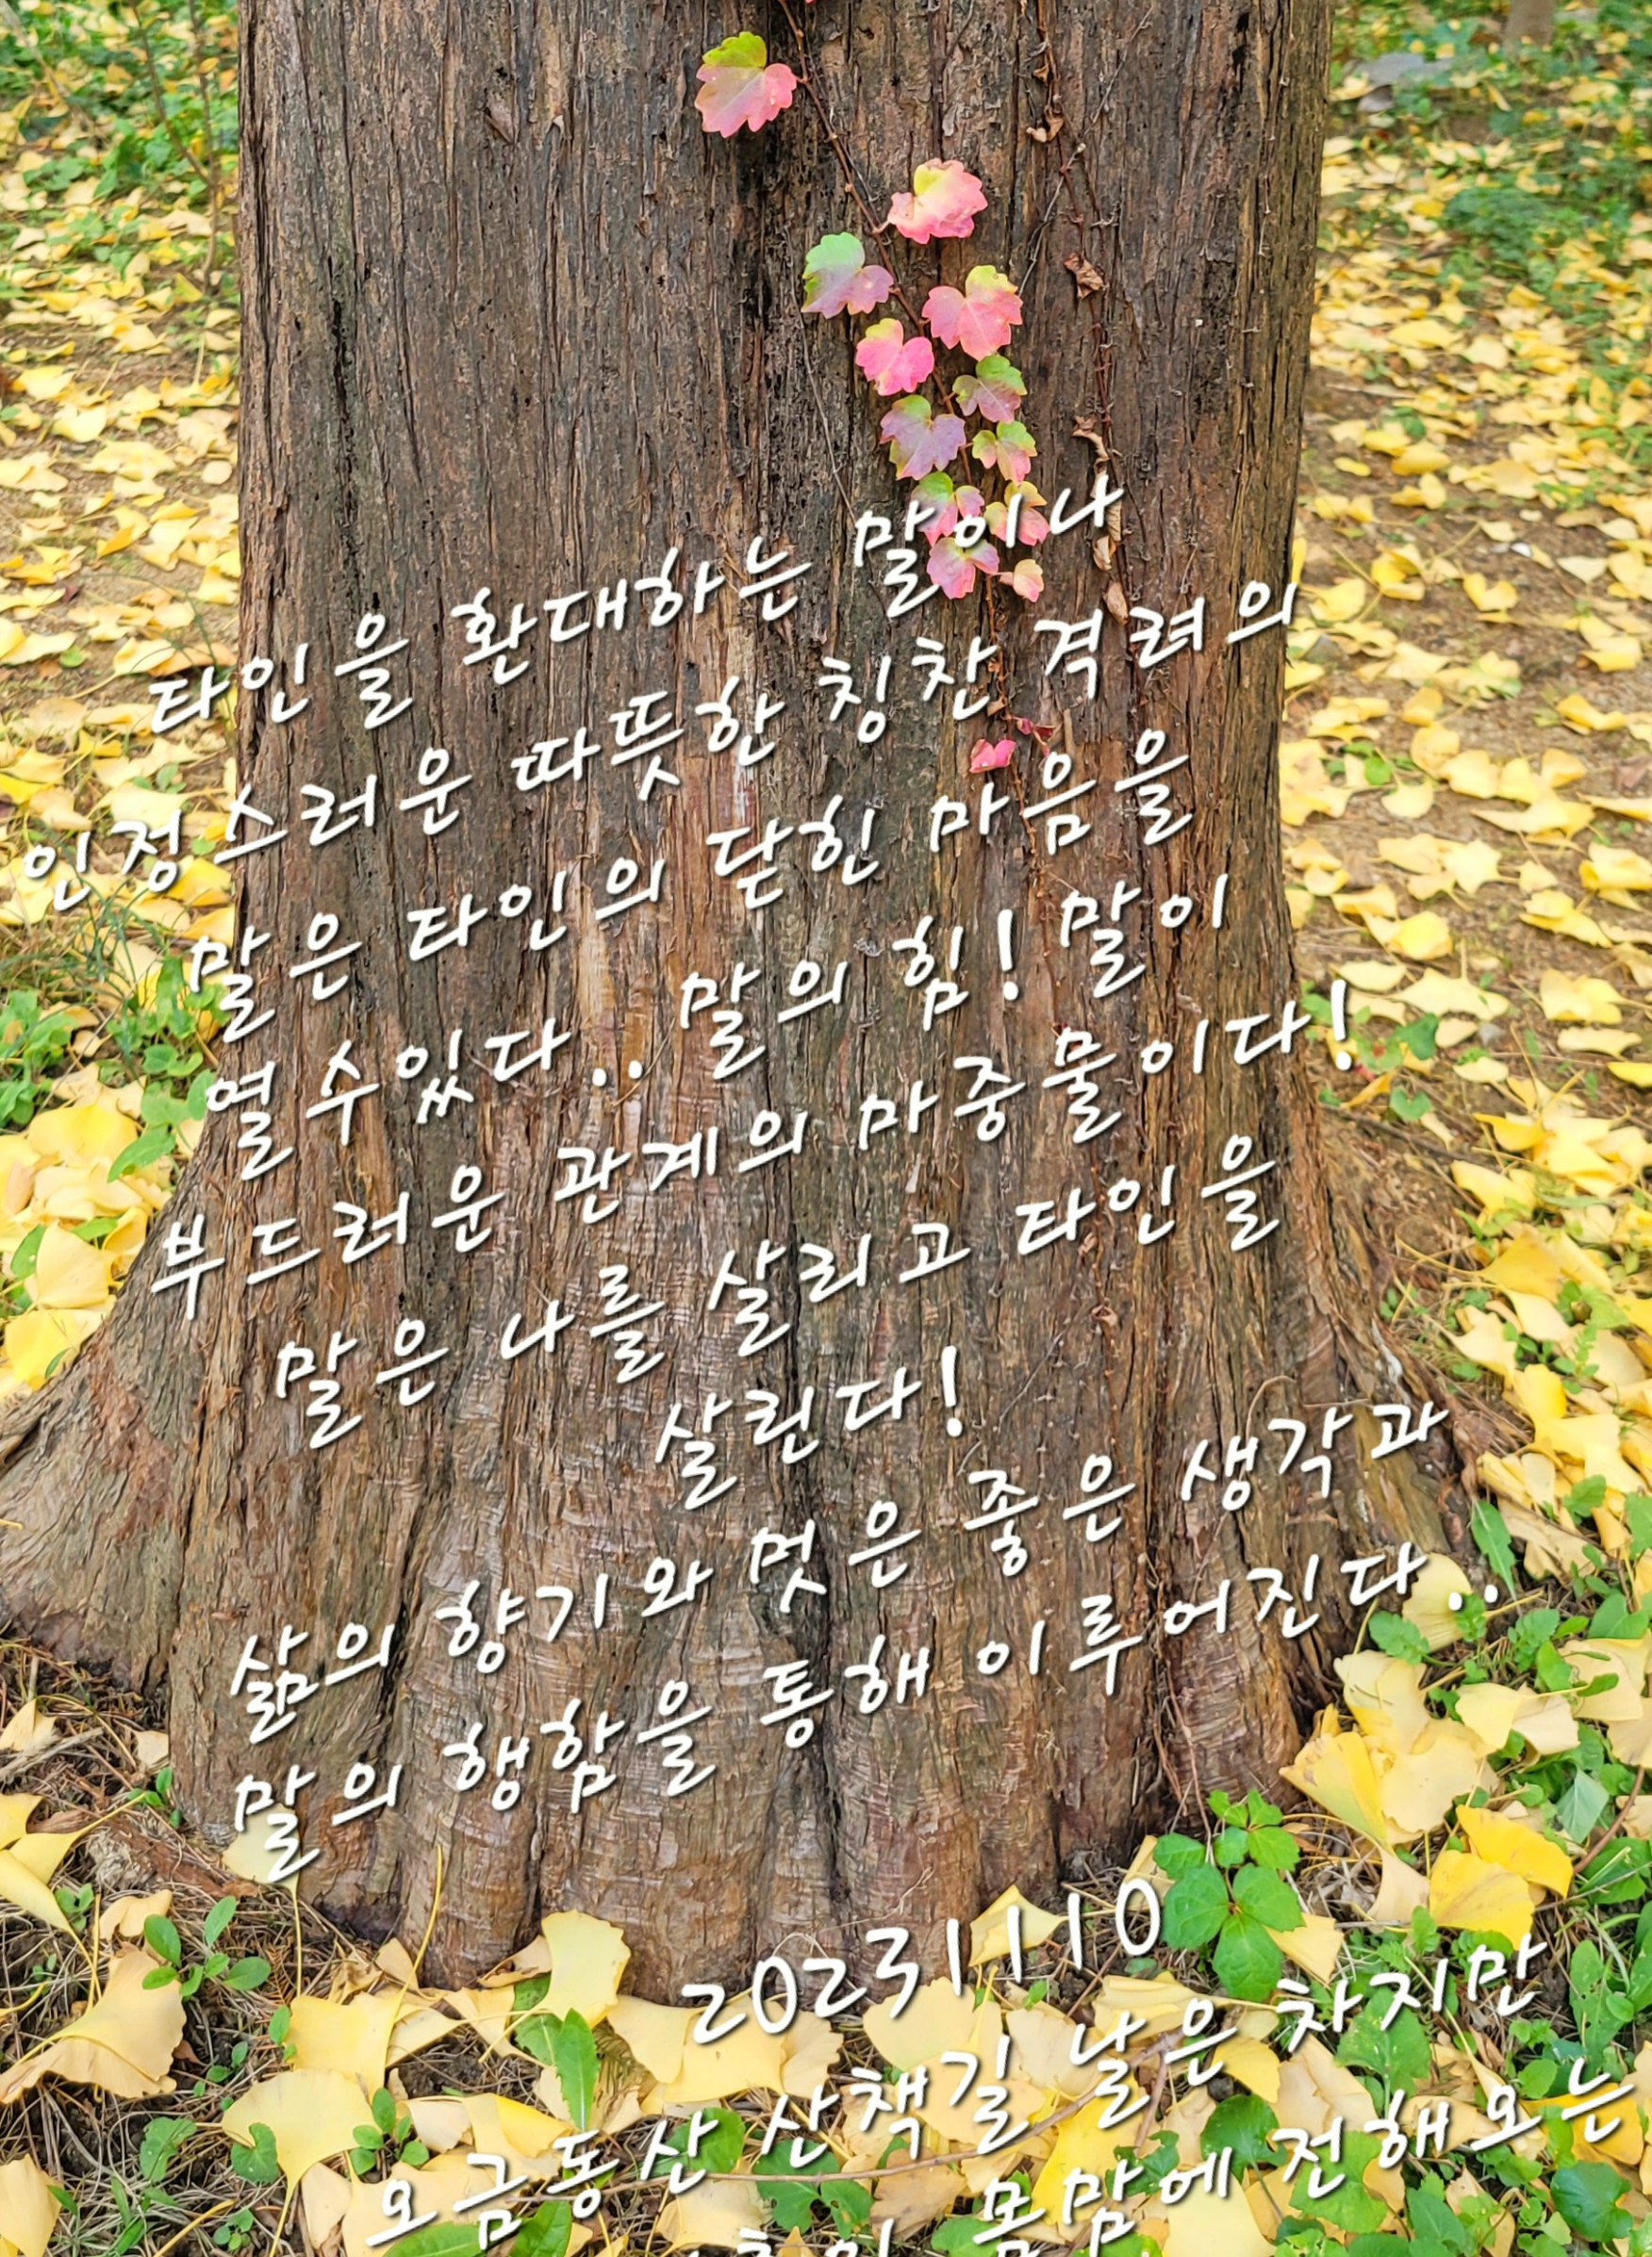 타인을 환대하는 말이나
인정스러운 따뜻한 칭찬 격려의
말은 타인의 닫힌 마음을
열수있다.. 말의 힘! 말이
부드러운 관계의 마중물이다!
말은 나를 살리고 타인을
살린다!
삶의 향기와 멋은 좋은 생각과
말의 행함을 통해 이루어진다..
20231110
오금동산 산책길 날은 차지만
몸맘에 전해오는